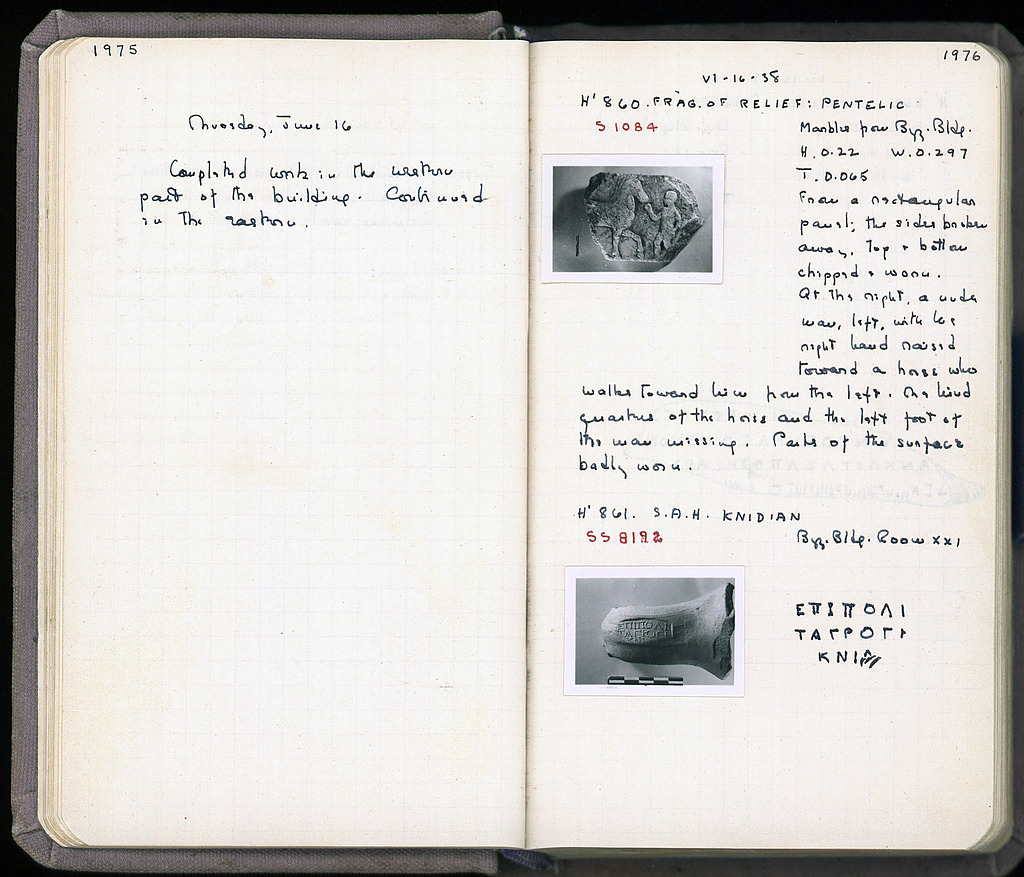 1975
Thursday, June 16
Completed work in the western
part of the building. Continued
in the eastern.
1976
VI-16-38
H' 860. FRAG. OF RELIEF: PENTELIC
S 1084
Marbles from Byz. Bldg.
H. 0.22 W. 0.297
T. 0.065
From a rectangular
panel; the sides broken
away. Top + bottom
chipped + worn.
At the right, a nude
man, left, with his
right hand raised
toward a horse who
walks toward him from the left. The hind
quarters of the horse and the left foot of
the man missing. Parts of the surface
badly worn.
H' 861. S.A.H. KNIDIAN
SS 8192
Byz. Bldg. Room XXI
ΕΠΙΠΟΛΙ
ΤΑΓΡΟΓΙ
ΚΝΙΔ
ΕΠΙΠΟΛΙ